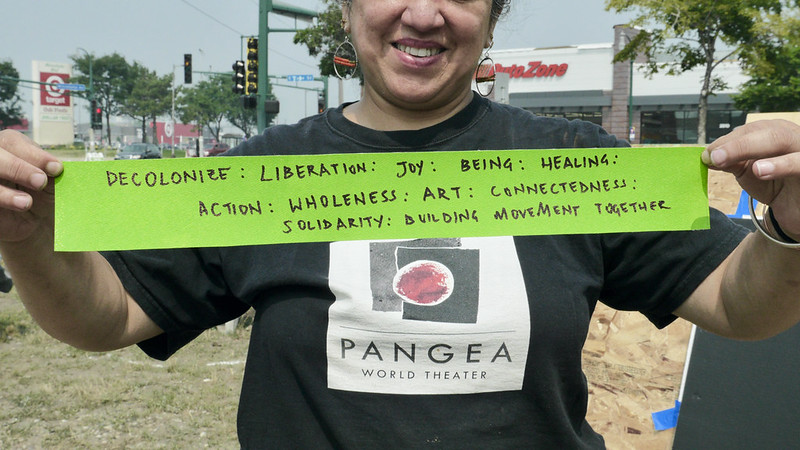 target
AutoZone
DECOLONIZE: LIBERATION: JOY: BEING: HEALING:
ACTION: WHOLENESS: ART: CONNECTEDNESS:
SOLIDARITY: BUILDING MOVEMENT TOGETHER
PANGEA
WORLD THEATER